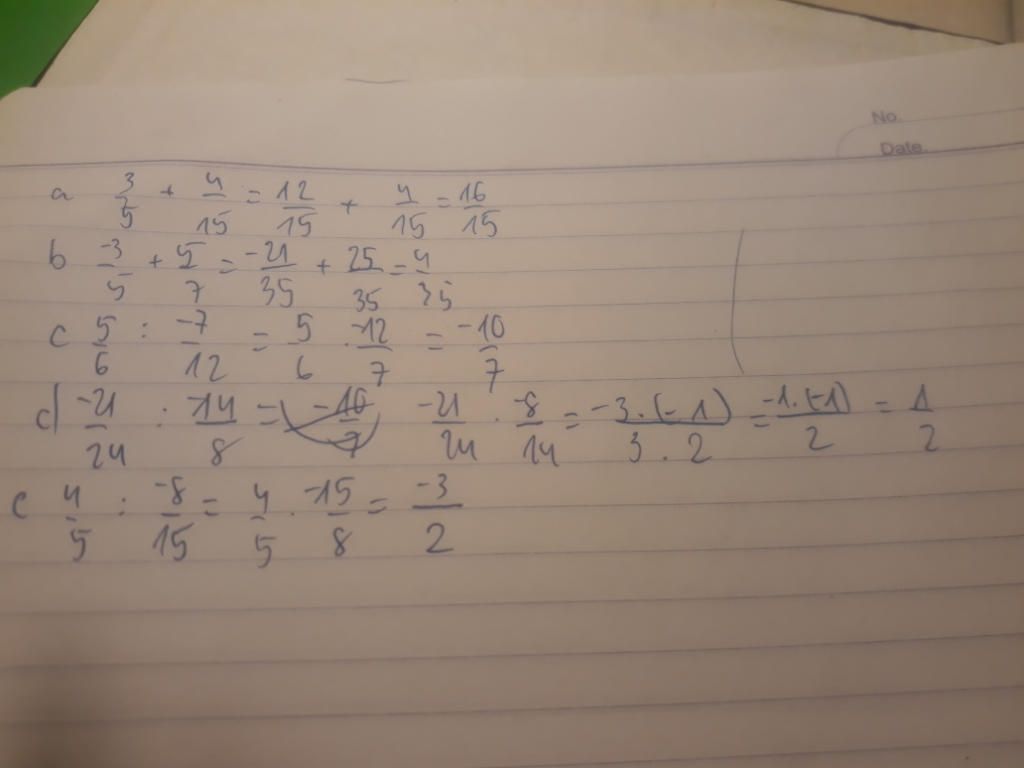 No.
Date.
a 3/5 + 4/15 = 12/15 + 4/15 = 16/15
b -3/5 + 5/7 = -21/35 + 25/35 = 4/35
c 5/6 : -7/12 = 5/6 . -12/7 = -10/7
d) -21/24 : -14/8 = -10/7 -21/24 . -8/14 = -3.(-1)/3.2 = -1.(-1)/2 = 1/2
e 4/5 : -8/15 = 4/5 . -15/8 = -3/2